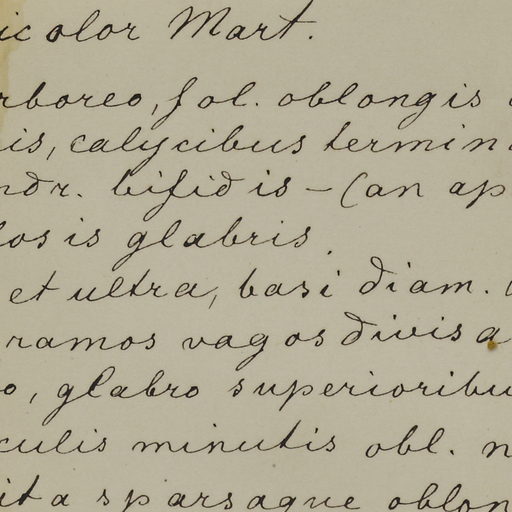 icolor Mart.
rboreo, fol. oblongis
is, calycibus termin
ndr. bifidis – (an ap
losis glabris.
et ultra, basi diam.
ramos vagos divisa
o, glabro superioribu
culis minutis obl. n
ita sparsaque oblon